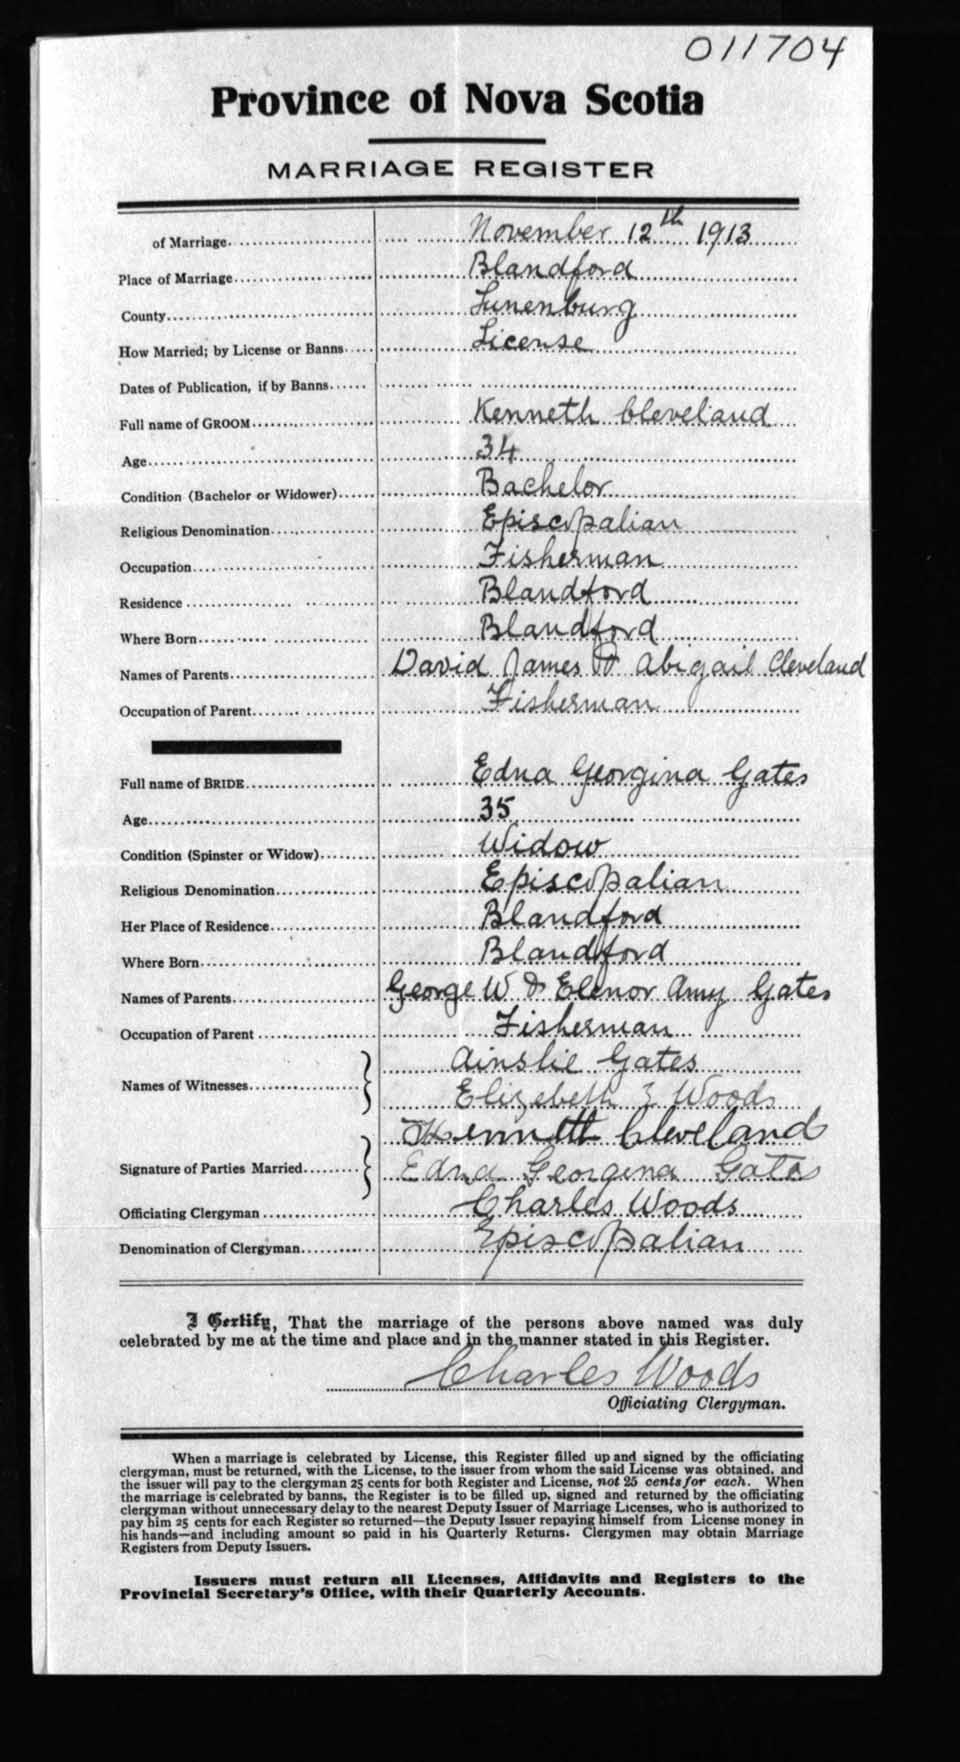 011704
Province of Nova Scotia
MARRIAGE REGISTER
of Marriage November 12th 1913
Place of Marriage Blandford
County Lunenburg
How Married; by License or Banns License
Dates of Publication, if by Banns
Full name of GROOM Kenneth Cleveland
Age 34
Condition (Bachelor or Widower) Bachelor
Religious Denomination Episcopalian
Occupation Fisherman
Residence Blandford
Where Born Blandford
Names of Parents David James & Abigail Cleveland
Occupation of Parent Fisherman
Full name of BRIDE Edna Georgina Gates
Age 35
Condition (Spinster or Widow) Widow
Religious Denomination Episcopalian
Her Place of Residence Blandford
Where Born Blandford
Names of Parents George W & Elenor Amy Gates
Occupation of Parent Fisherman
Names of Witnesses Ainslie Gates
Elizebeth Woods
Signature of Parties Married Kennett Cleveland
Edna Georgina Gates
Officiating Clergyman Charles Woods
Denomination of Clergyman Episcopalian
I Certify, That the marriage of the persons above named was duly
celebrated by me at the time and place and in the manner stated in this Register.
Charles Woods
Officiating Clergyman.
When a marriage is celebrated by License, this Register filled up and signed by the officiating
clergyman, must be returned, with the License, to the issuer from whom the said License was obtained, and
the issuer will pay to the clergyman 25 cents for both Register and License, not 25 cents for each. When
the marriage is celebrated by banns, the Register is to be filled up, signed and returned by the officiating
clergyman without unnecessary delay to the nearest Deputy Issuer of Marriage Licenses, who is authorized to
pay him 25 cents for each Register so returned—the Deputy Issuer repaying himself from License money in
his hands—and including amount so paid in his Quarterly Returns. Clergymen may obtain Marriage
Registers from Deputy Issuers.
Issuers must return all Licenses, Affidavits and Registers to the
Provincial Secretary's Office, with their Quarterly Accounts.